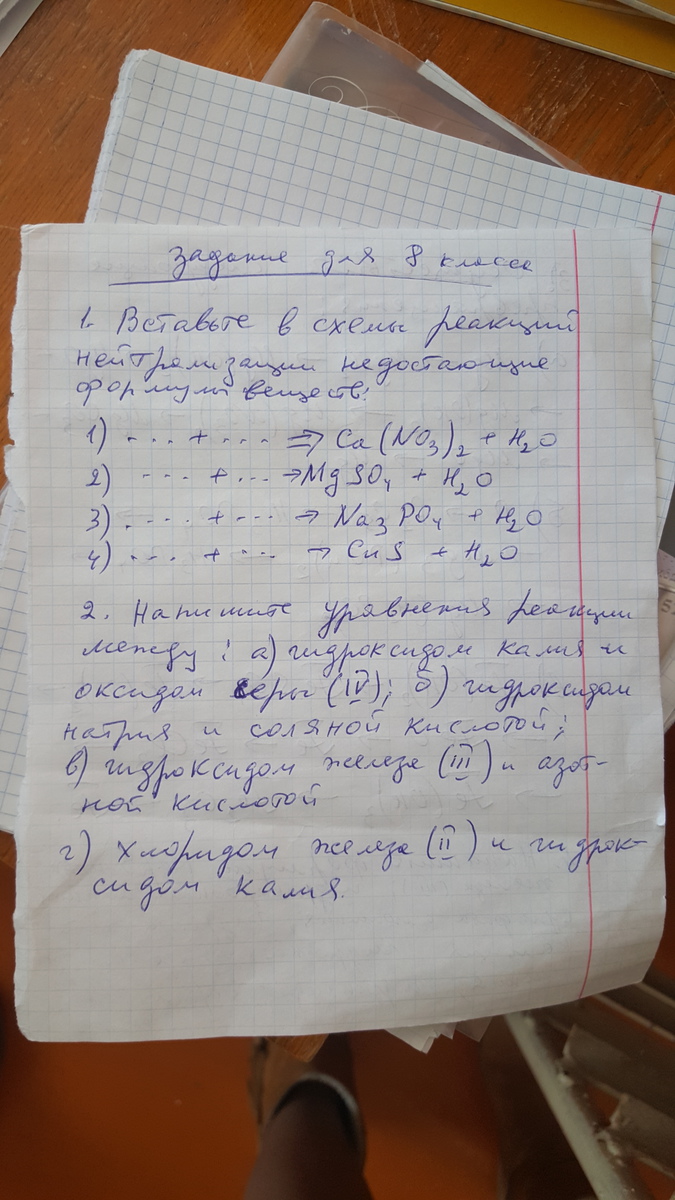 Задание для 8 класса
1. Вставьте в схемы реакций
нейтрализации недостающие
формулы веществ:
1) ... + ... ⇒ Ca(NO₃)₂ + H₂O
2) ... + ... → MgSO₄ + H₂O
3) .... + ... → Na₃PO₄ + H₂O
4) ... + ... → CuS + H₂O
2. Напишите уравнения реакции
между: а) гидроксидом калия и
оксидом серы (IV); б) гидроксидом
натрия и соляной кислотой;
в) гидроксидом железа (III) и азот-
ной кислотой
г) хлоридом железа (II) и гидрок-
сидом калия.